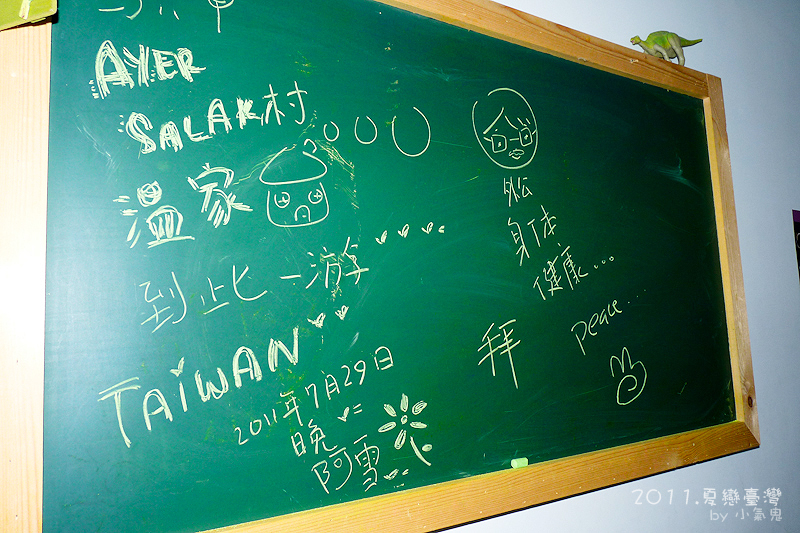 AYER
SALAK村
溫家
到此一游
TAIWAN
2011年7月29日
晚
阿雪
身体
健康...
peace...
拜
2011.夏戀臺灣
by 小氣鬼